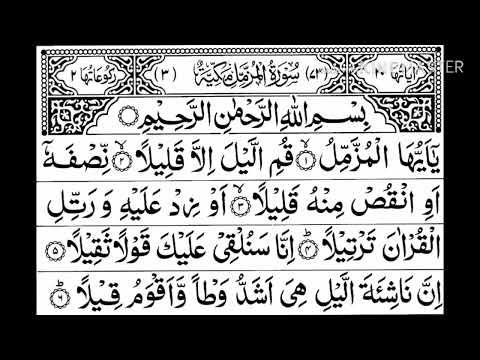 اٰيَاتُهَا ٢٠ (٧٣) سُوْرَةُ الْمُزَّمِّلِ مَكِّيَّةٌ (٣) رُكُوْعَاتُهَا ٢
بِسْمِ اللّٰهِ الرَّحْمٰنِ الرَّحِيْمِ
يٰۤاَيُّهَا الْمُزَّمِّلُ ۙ‏١ قُمِ الَّيْلَ اِلَّا قَلِيْلًا ۙ‏٢ نِّصْفَهٗۤ
اَوِ انْقُصْ مِنْهُ قَلِيْلًا ۙ‏٣ اَوْ زِدْ عَلَيْهِ وَ رَتِّلِ
الْقُرْاٰنَ تَرْتِيْلًا ؕ‏٤ اِنَّا سَنُلْقِيْ عَلَيْكَ قَوْلًا ثَقِيْلًا ٥
اِنَّ نَاشِئَةَ الَّيْلِ هِيَ اَشَدُّ وَطْاً وَّاَقْوَمُ قِيْلًا ؕ‏٦